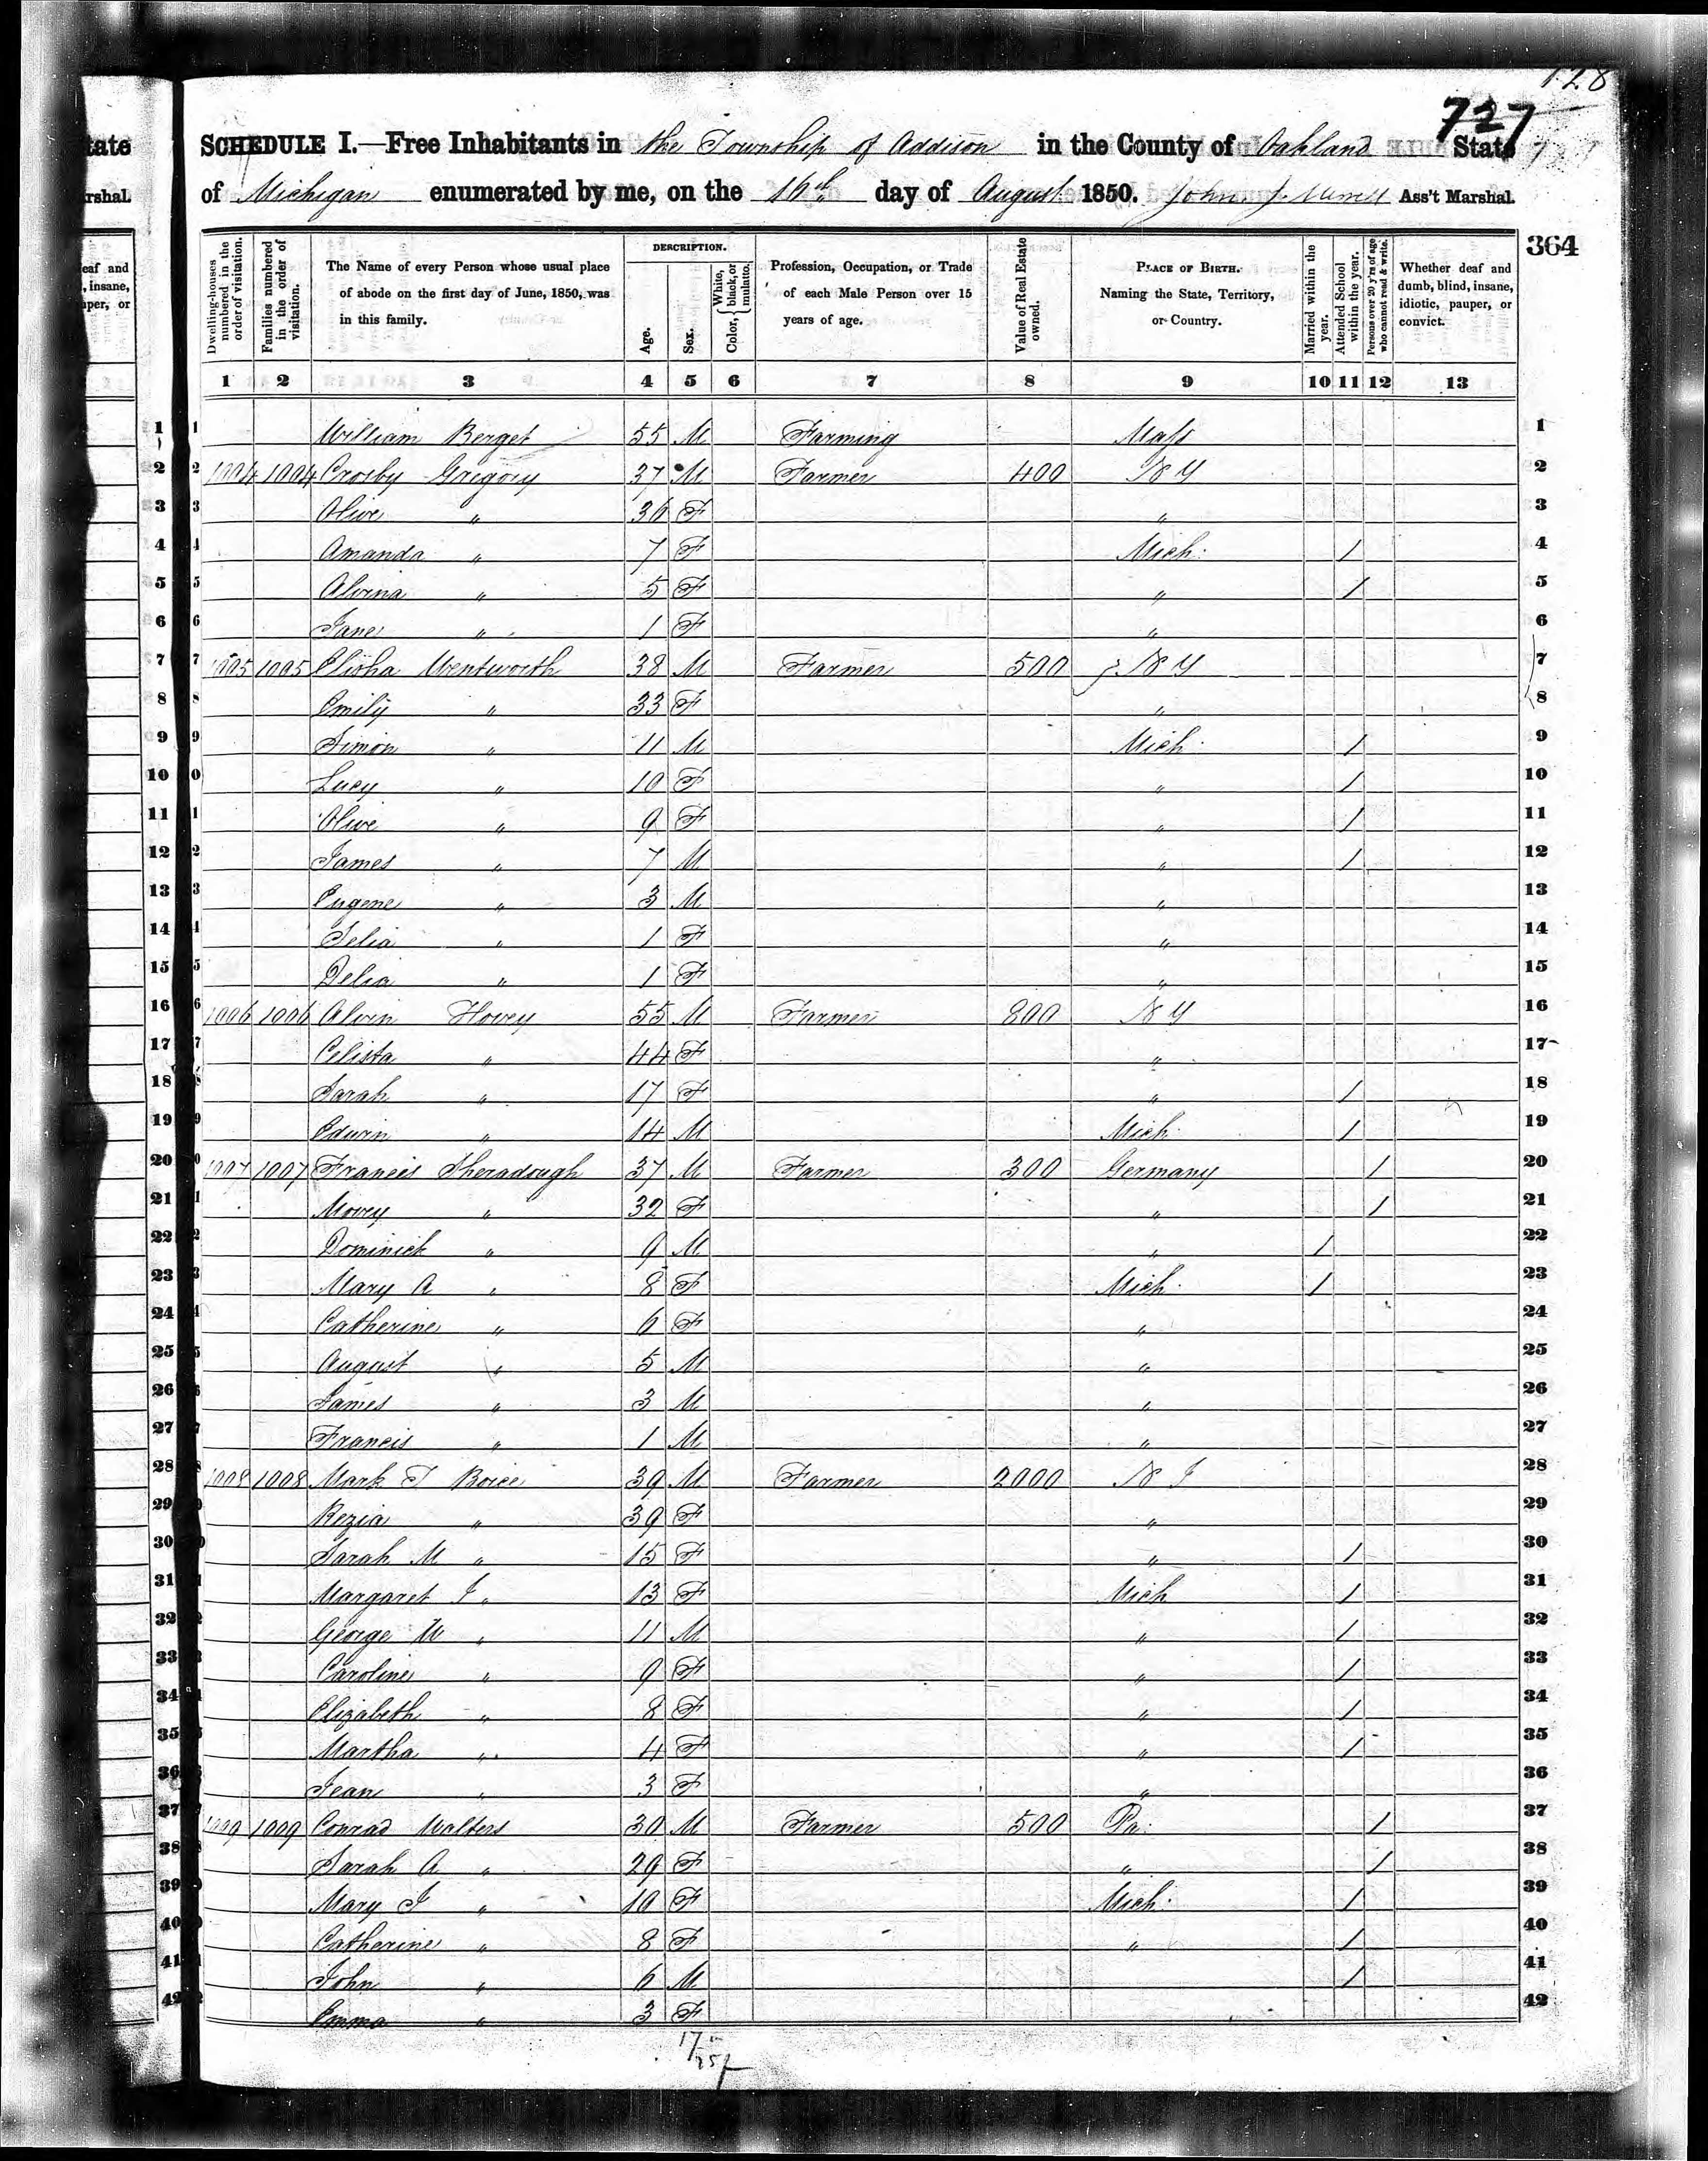 128
727
SCHEDULE I.—Free Inhabitants in the Township of Addison in the County of Oakland State
of Michigan enumerated by me, on the 16th day of August 1850. John J. Ass't Marshal.
364
Dwelling-houses numbered in the order of visitation. Families numbered in the order of visitation. The Name of every Person whose usual place of abode on the first day of June, 1850, was in this family. DESCRIPTION. Age. Sex. Color, { White, black, or mulatto. Profession, Occupation, or Trade of each Male Person over 15 years of age. Value of Real Estate owned. PLACE OF BIRTH. Naming the State, Territory, or Country. Married within the year. Attended School within the year. Persons over 20 y'rs of age who cannot read & write. Whether deaf and dumb, blind, insane, idiotic, pauper, or convict.
1 2 3 4 5 6 7 8 9 10 11 12 13
1 William Berget 55 M Farming Mass 1
2 1004 1004 Crosby Gregory 37 M Farmer 400 N Y 2
3 Olive " 36 F " 3
4 Amanda " 7 F Mich. 1 4
5 Alvina " 5 F " 1 5
6 Jane " 1 F " 6
7 1005 1005 Elisha Wentworth 38 M Farmer 500 N Y 7
8 Emily " 33 F " 8
9 Simon " 11 M Mich. 1 9
10 Lucy " 10 F " 1 10
11 Olive " 9 F " 1 11
12 James " 7 M " 1 12
13 Eugene " 3 M " 13
14 Selia " 1 F " 14
15 Delia " 1 F " 15
16 1006 1006 Alvin Hovey 55 M Farmer 800 N Y 16
17 Celista " 44 F " 17
18 Sarah " 17 F " 1 18
19 Edwin " 14 M Mich. 1 19
20 1007 1007 Francis Sheradough 37 M Farmer 300 Germany 1 20
21 Movey " 32 F " 1 21
22 Dominick " 9 M " 1 22
23 Mary A " 8 F Mich. 1 23
24 Catherine " 6 F " 24
25 August " 5 M " 25
26 James " 3 M " 26
27 Francis " 1 M " 27
28 1008 1008 Mark T Boice 39 M Farmer 2000 N J 28
29 Kezia " 39 F " 29
30 Sarah M " 15 F " 1 30
31 Margaret J " 13 F Mich 1 31
32 George W " 11 M " 1 32
33 Caroline " 9 F " 1 33
34 Elizabeth " 8 F " 1 34
35 Martha " 4 F " 1 35
36 Jean " 3 F " 36
37 1009 1009 Conrad Walters 30 M Farmer 500 Pa. 1 37
38 Sarah A " 29 F " 1 38
39 Mary J " 10 F Mich. 1 39
40 Catherine " 8 F " 1 40
41 John " 6 M 1 41
42 Emma " 3 F 42
17